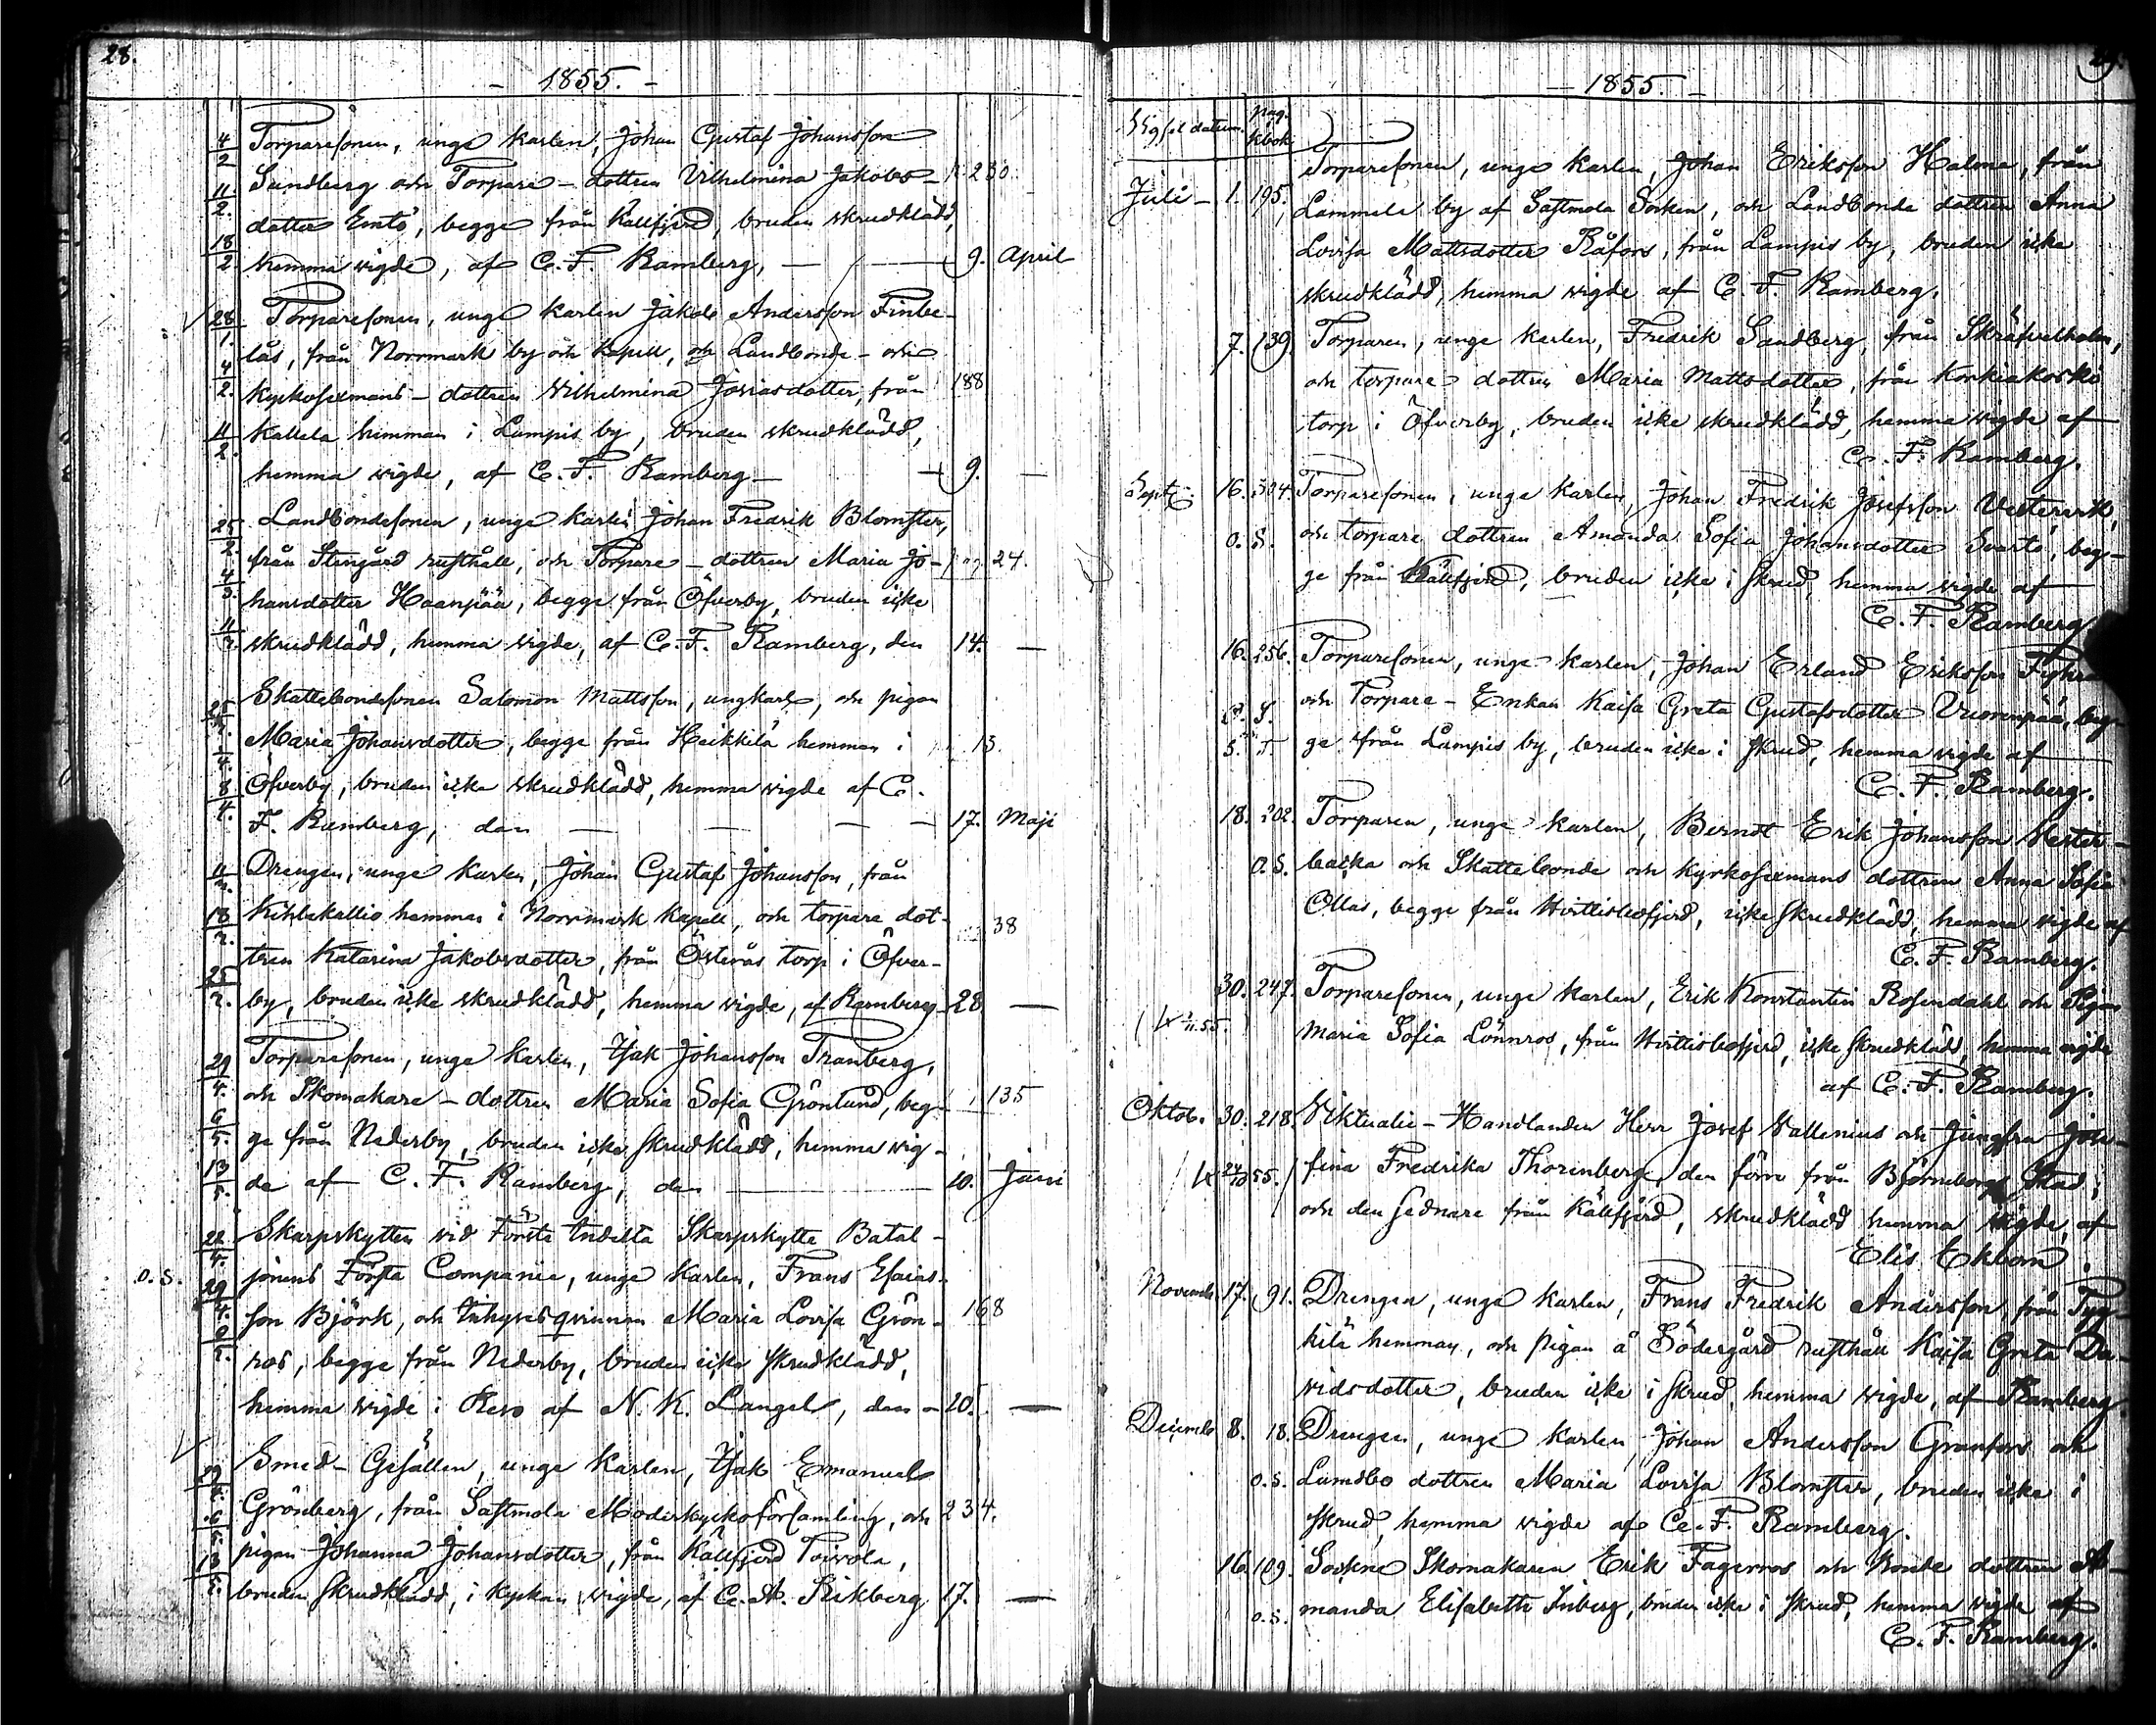 28.
- 1855. -
4/2 Torparesonen, unge karlen, Johan Gustaf Johansson
11/2. Sundberg och Torpare-dottren Vilhelmina Jakobs- 230.
dotter Emtö, begge från Kållfjerd, bruden skrudklädd,
18/2. hemma vigde, af C. F. Ramberg, — — 9. April
28/1. Torparesonen, unge karlen Jakob Andersson Finbe-
lås, från Norrmark by och kapell, och Landbonde- och
4/2. kyrkosexmans-dottren Vilhelmina Josiasdotter, från 188
11/2. Kallela hemman i Lampis by, bruden skrudklädd,
hemma vigde, af C. F. Ramberg — 9. —
25/2. Landbondesonen, unge karlen Johan Fredrik Blomster,
4/3. från Stengård rusthåll, och Torpare-dottren Maria Jo- pag 24.
hansdotter Haanpää, begge från Öfverby, bruden icke
11/3. skrudklädd, hemma vigde, af C. F. Ramberg, den 14. —
Skattebondesonen Salomon Mattsson, ungkarl, och pigan
Maria Johansdotter, begge från Heikkilä hemman i 13.
8/4. Öfverby, bruden icke skrudklädd, hemma vigde af C.
F. Ramberg, den — — — 17. Maji
11/3. Drengen, unge karlen, Johan Gustaf Johansson, från
18/3. Kihlakallio hemman i Norrmark kapell, och torpare dot- 38
tren Katarina Jakobsdotter, från Österås torp i Öfver-
25/3. by, bruden icke skrudklädd, hemma vigde, af Ramberg 28. —
29/4. Torparesonen, unge karlen, Isak Johansson Tranberg,
och Skomakare-dottren Maria Sofia Grönlund, beg- 135
6/5. ge från Nederby, bruden icke skrudklädd, hemma vig-
13/5. de af C. F. Ramberg, den — 10. Juni
22/4. Skarpskytten vid Första Indelta Skarpskytte Batal-
o.s. 29/4. jonens Första Companie, unge karlen, Frans Esaias-
son Björk, och Inhyses qvinnan Maria Lovisa Grön- 168
ros, begge från Nederby, bruden icke skrudklädd,
hemma vigde i Reso af N. K. Langel, den - 20. —
29/4. Smed-Gesällen, unge karlen, Isak Emanuel
6/5. Grönberg, från Sastmola Moderkyrkoförsamling, och 234.
13/5. pigan Johanna Johansdotter, från Kållfjerd Toivola,
bruden skrudklädd, i kyrkan vigde, af C. A. Rikberg 17. —
29.
- 1855. -
Vigsel datum. Pag. kbok
Torparesonen, unge karlen, Johan Eriksson Halme, från
Juli - 1. 195. Lammela by af Sastmola Socken, och Landbonde dottren Anna
Lovisa Mattsdotter Råfors, från Lampis by, bruden icke
skrudklädd, hemma vigde af C. F. Ramberg.
7. 139. Torparen, unge karlen, Fredrik Sandberg, från Skräfvelholm,
och torpare dottren Maria Mattsdotter, från Korkiakoski
torp i Öfverby, bruden icke skrudklädd, hemma vigde af
C. F. Ramberg.
Sept. 16. 304. Torparesonen, unge karlen, Johan Fredrik Josefsson Vestervik,
o. S. och torpare dottren Amanda Sofia Johansdotter Svartö, beg-
ge från Kållfjerd, bruden icke i skrud, hemma vigde af
C. F. Ramberg.
16. 256. Torparesonen, unge karlen, Johan Erland Eriksson
och Torpare-Enkan Kaisa Greta Gustafsdotter Vuorenpää, beg-
ge från Lampis by, bruden icke i skrud, hemma vigde af
C. F. Ramberg.
18. 202. Torparen, unge karlen, Berndt Erik Johansson Vester-
o.s. backa och Skattebonde och kyrkosexmans dottren Anna Sofia
Ollas, begge från Hvittisbofjerd, icke skrudklädd, hemma vigde af
C. F. Ramberg.
30. 247. Torparesonen, unge karlen, Erik Konstantin Rosendahl och Pigan
Maria Sofia Lönnros, från Hvittisbofjerd, icke skrudklädd, hemma vigde
af C. F. Ramberg.
Oktob. 30. 218. Viktualie-Handlanden Herr Josef Vallenius och Jungfru Jose-
fina Fredrika Thorenberg, den förre från Björneborgs Stad,
och den sednare från Kållfjerd, skrudklädd hemma vigde, af
Elis Ekbom.
Novemb. 17. 91. Drengen, unge karlen, Frans Fredrik Andersson, från Pyy-
kilä hemman, och pigan å Södergård rusthåll Kaisa Greta Da-
vidsdotter, bruden icke i skrud, hemma vigde, af Ramberg.
Decemb 8. 18. Drengen, unge karlen, Johan Andersson Granfors och
o.s. Landbo dottren Maria Lovisa Blomster, bruden icke i
skrud, hemma vigde af C. F. Ramberg.
16. 109. Sockne Skomakaren Erik Fagerroos och Bonde dottren A-
o.s. manda Elisabeth Inberg, bruden icke i skrud, hemma vigde af
C. F. Ramberg.